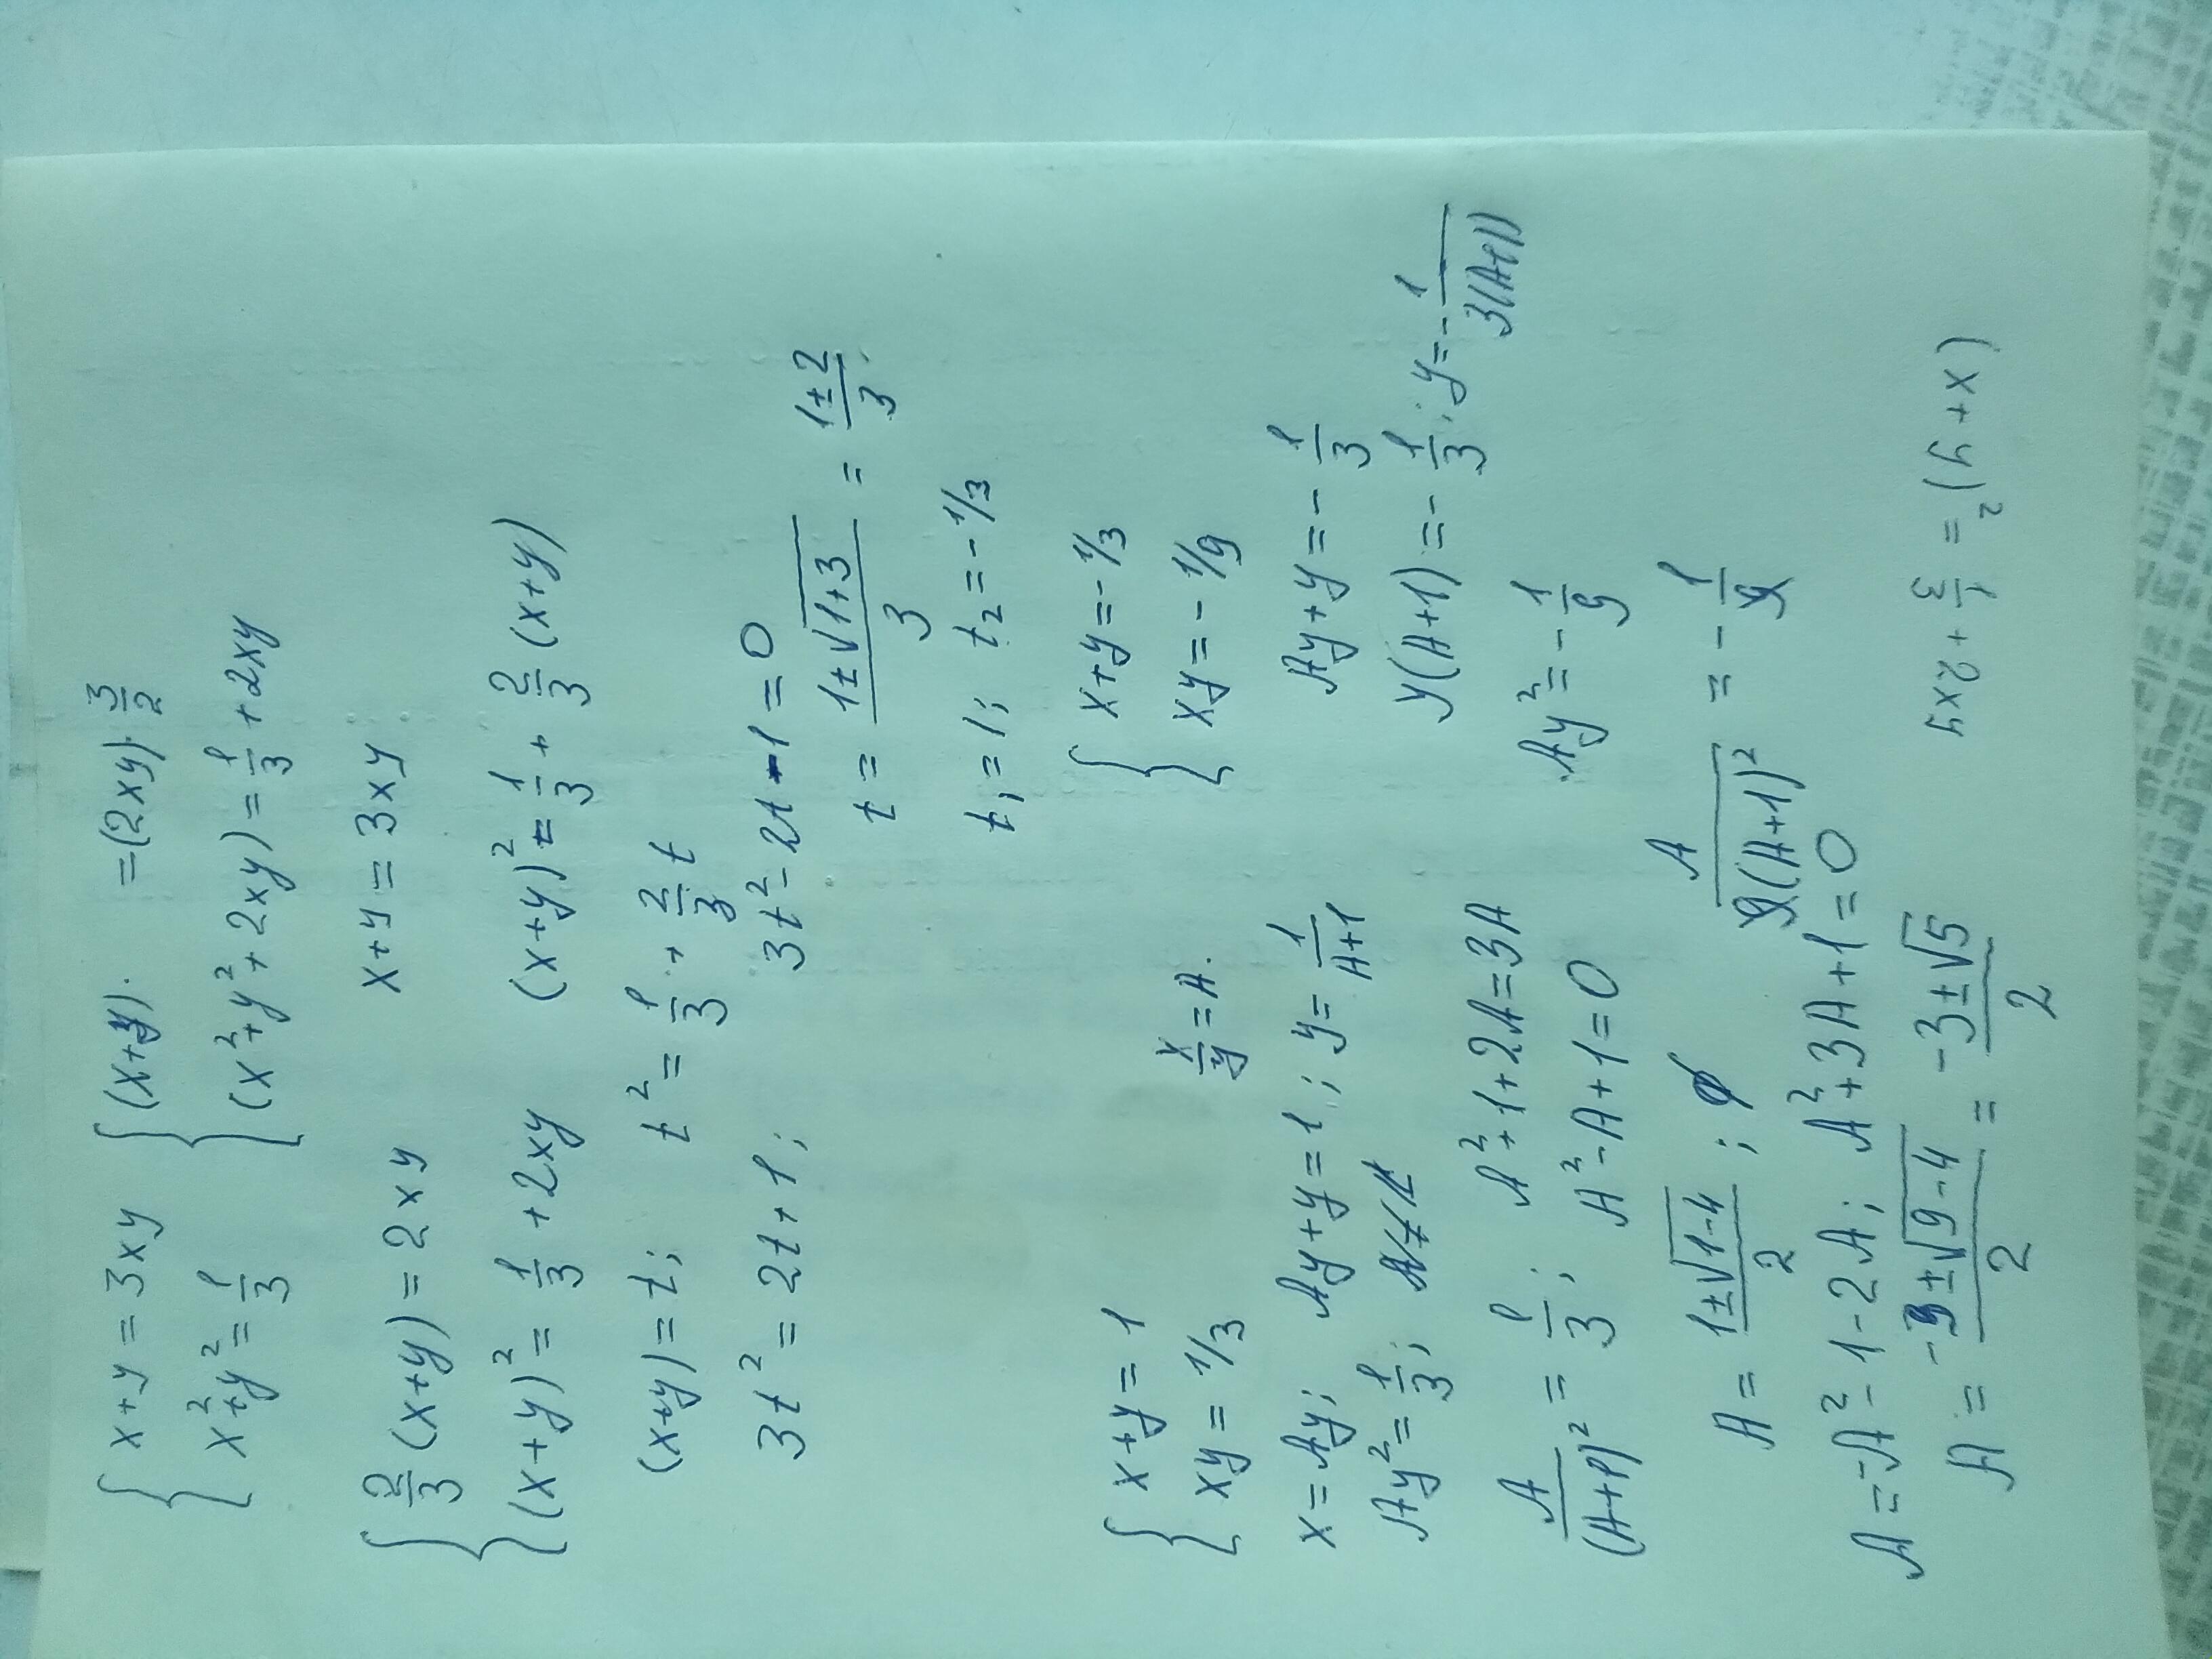 { x+y = 3xy { (x+y). = (2xy)·3/2
x²+y² = 1/3 (x²+y²+2xy) = 1/3 + 2xy
{ 2/3 (x+y) = 2xy x+y = 3xy
(x+y)² = 1/3 + 2xy (x+y)² = 1/3 + 2/3 (x+y)
(x+y) = t; t² = 1/3 + 2/3 t
3t² = 2t+1; 3t² - 2t - 1 = 0
t = (1±√(1+3))/3 = (1±2)/3.
t₁ = 1; t₂ = -1/3
{ x+y = 1 { x+y = -1/3
xy = 1/3 x/y = A. xy = -1/9
x = Ay; Ay+y = 1; y = 1/(A+1) Ay+y = -1/3
Ay² = 1/3; y(A+1) = -1/3; y = -1/(3(A+1))
A/(A+1)² = 1/3; A²+1+2A = 3A Ay² = -1/9
A² - A + 1 = 0
A = (1±√(1-4))/2; ∅ A/(9(A+1)²) = -1/9
A = -A² - 1 - 2A; A² + 3A + 1 = 0
A = (-3±√(9-4))/2 = (-3±√5)/2
(x+y)² = 1/3 + 2xy